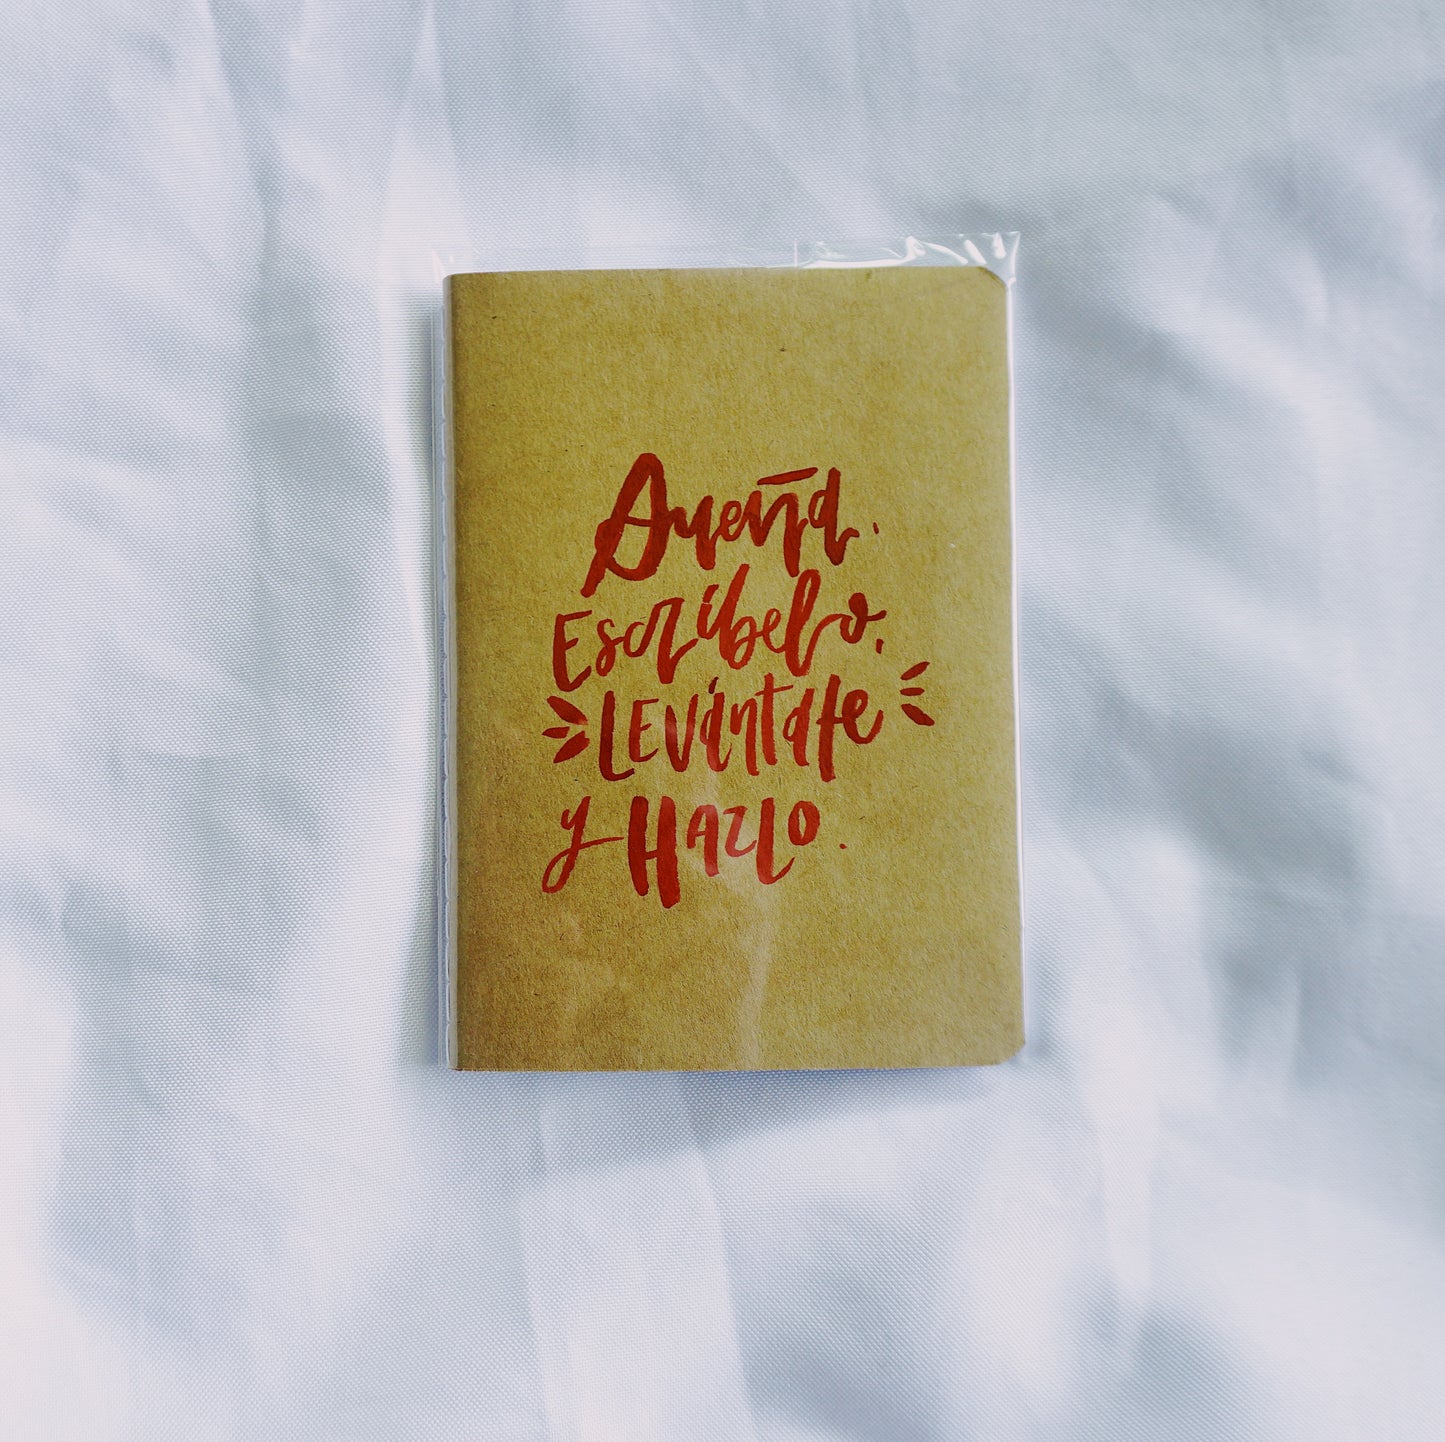 Sueña.
Escríbelo,
LEVántate
y HAZlo.